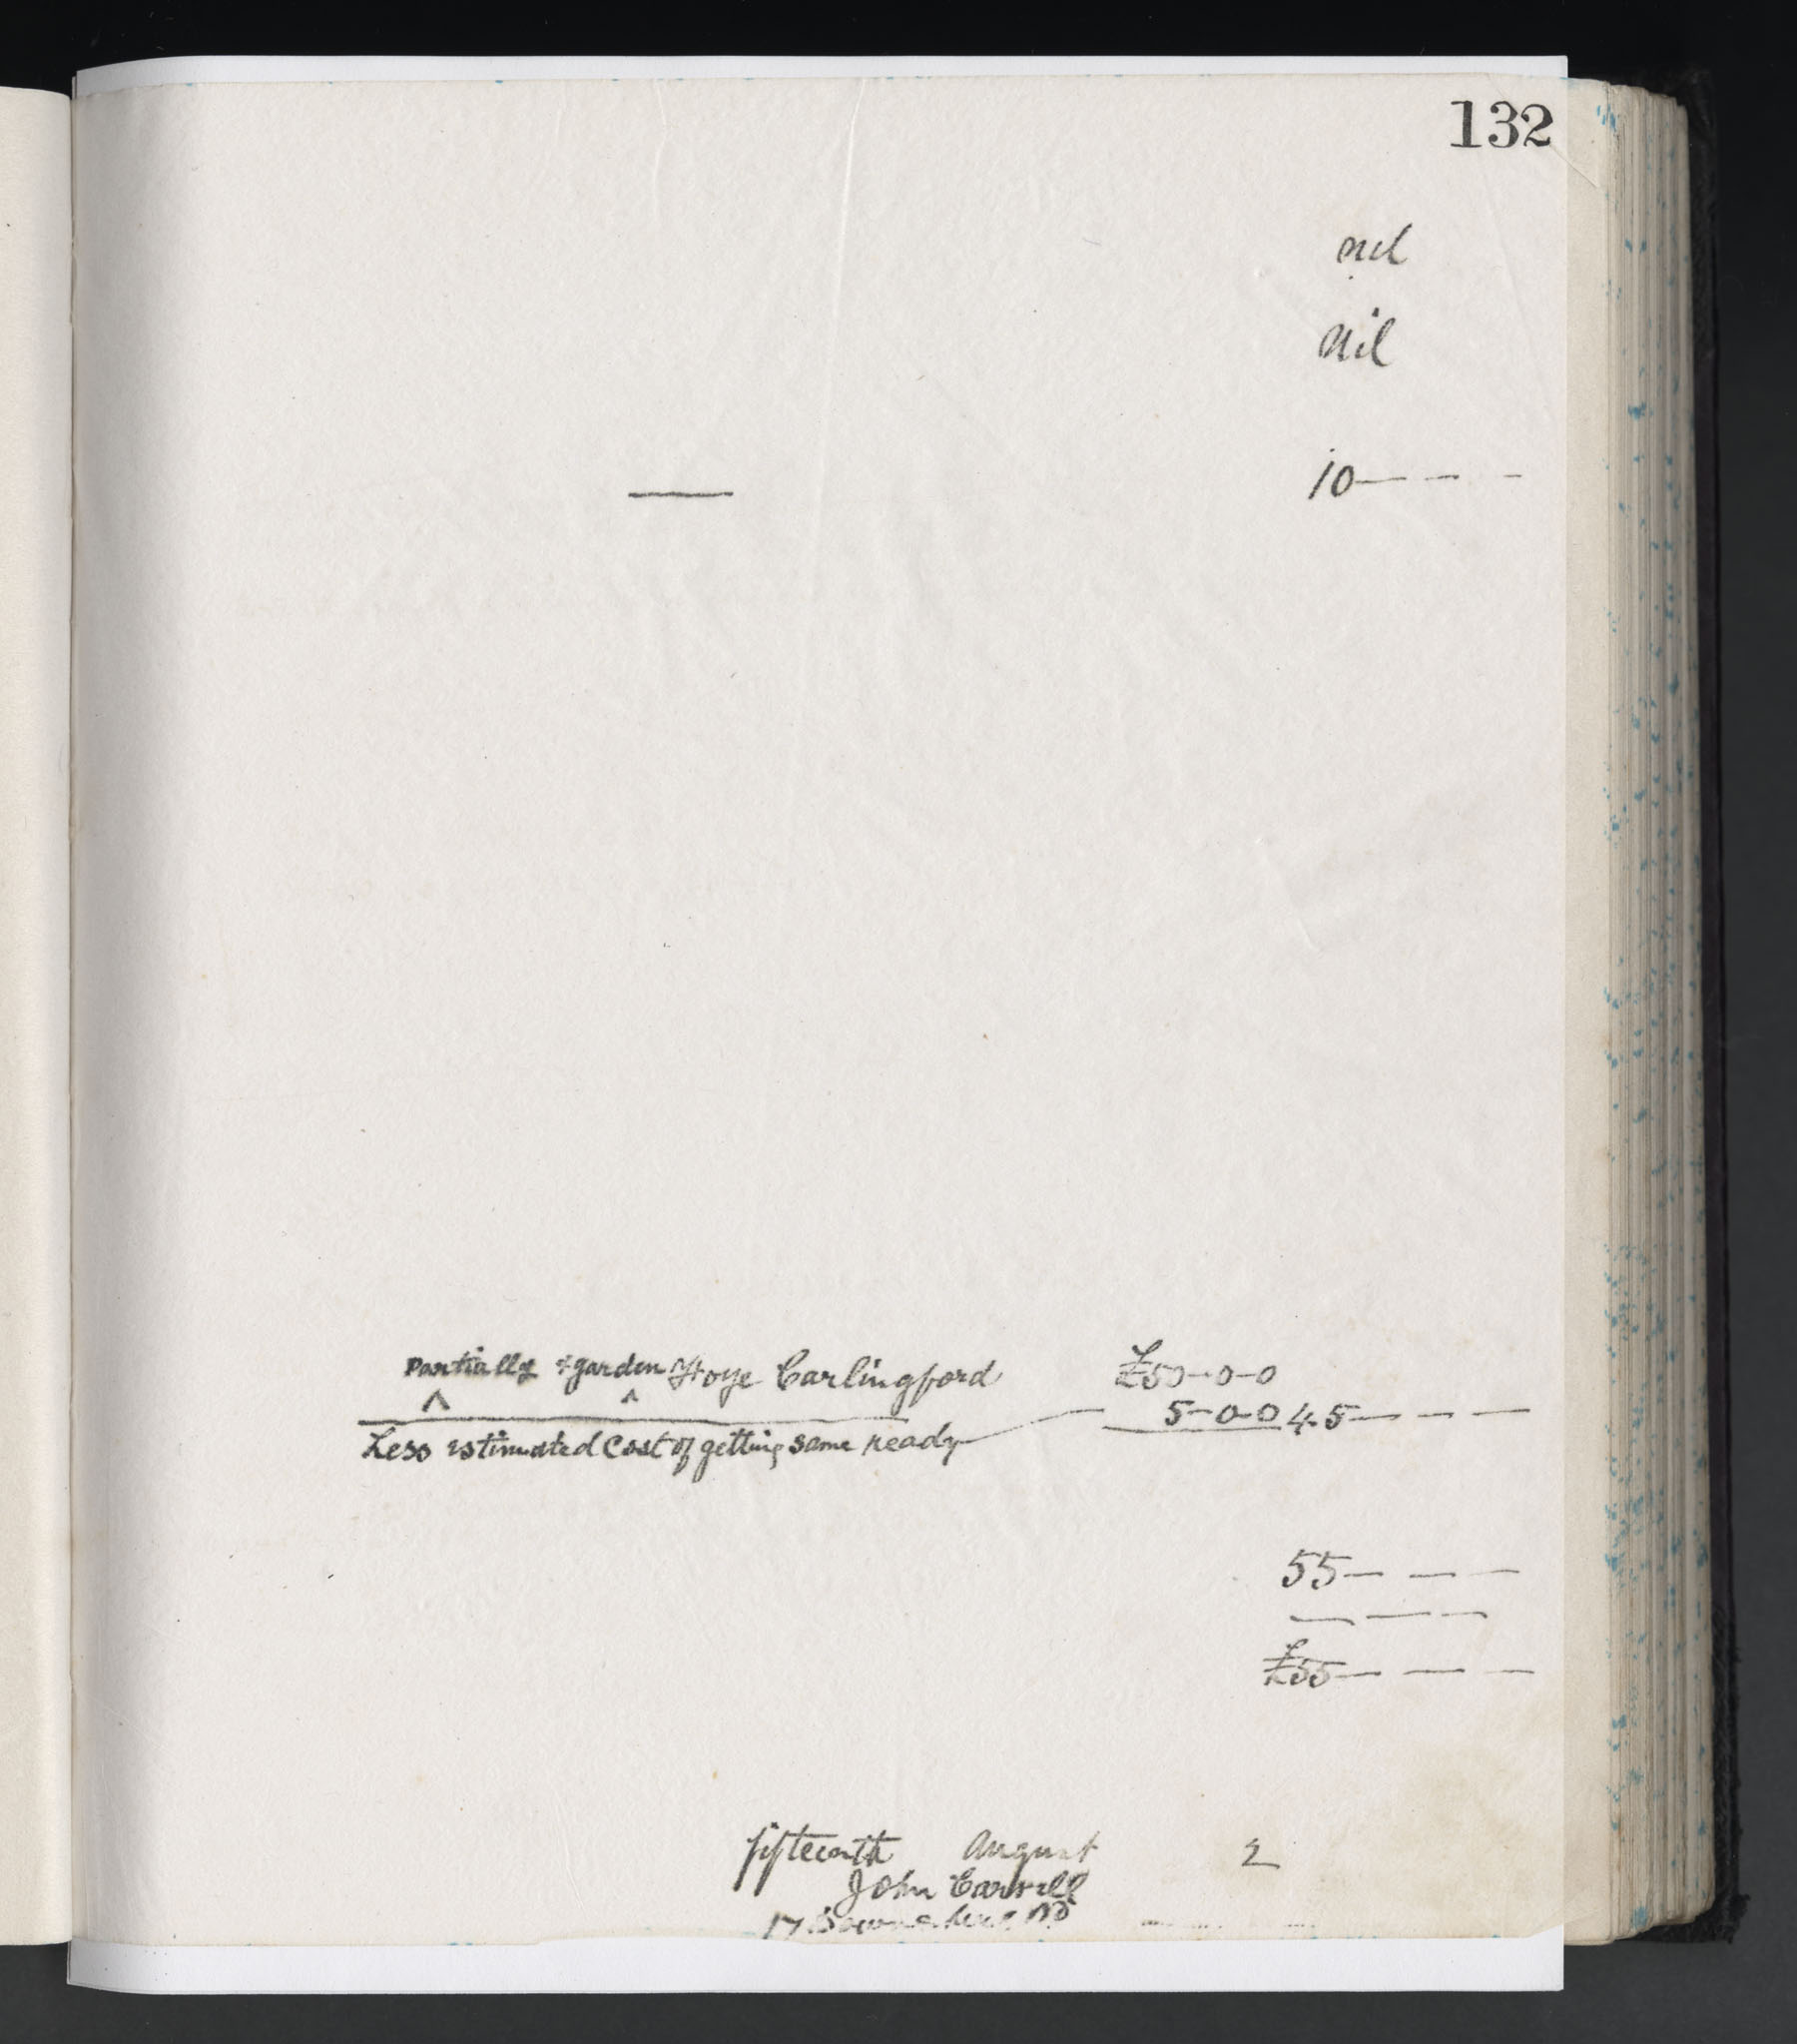 132
nil
nil
— 10 — — —
Partially & garden Hoye Carlingford £50-0-0
^ ^
5-0-0 45 — — —
Less estimated Cost of getting same ready
55 — — —
— — —
£55 — — —
fifteenth August 2
John Carvill
17